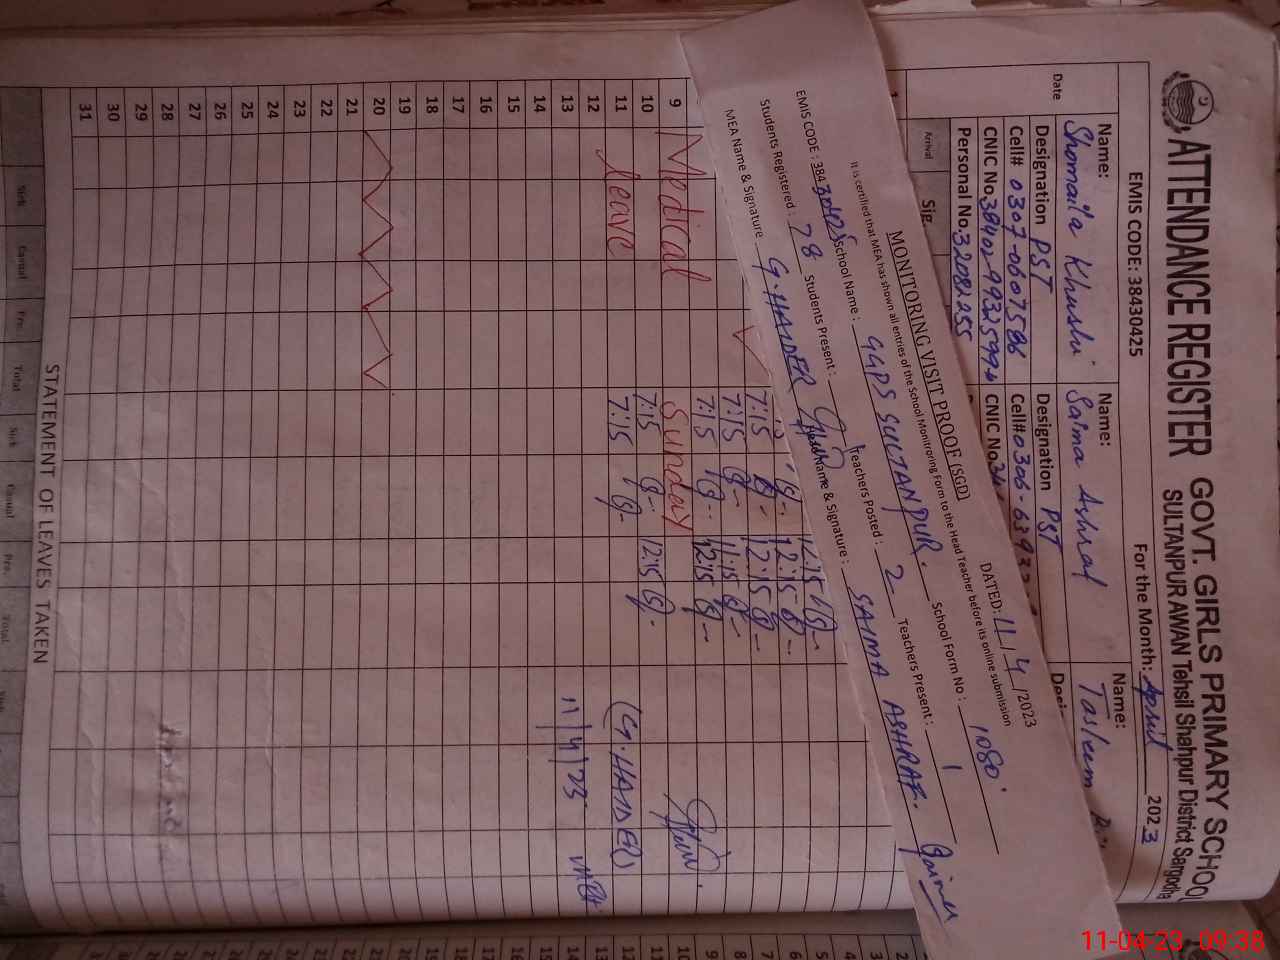 ATTENDANCE REGISTER GOVT. GIRLS PRIMARY SCHOOL
SULTANPUR AWAN Tehsil Shahpur District Sargodha
EMIS CODE: 38430425 For the Month: April 2023
Name: Name: Name:
Shomaila Khushi Saima Ashraf Tasleem
Date
Designation PST Designation PST
Cell# 0307-0607586 Cell# 0306-
CNIC No. CNIC No.
Personal No. 32082255
Arrival Sig.
MONITORING VISIT PROOF (SGD)
DATED: 11 / 4 /2023
It is certified that MEA has shown all entries of the School Monitroring Form to the Head Teacher before its online submission
EMIS CODE : 384 30425 School Name : GGPS SULTANPUR. School Form No : 1080
Students Registered : 78 Students Present : Teachers Posted : 2 Teachers Present : 1
MEA Name & Signature G.HAIDER Name & Signature : SAIMA ASHRAF.
7:15 12:15
7:15 11:15
7:15 12:15
9 Medical Sunday
10 7:15 12:15
11 leave 7:15 (G.HAIDER)
12
13 11/4/23 MEA
14
15
16
17
18
19
20
21
22
23
24
25
26
27
28
29
30
31
STATEMENT OF LEAVES TAKEN
Sick Casual Prv. Total Sick Casual Prv. Total
11-04-23 09:38